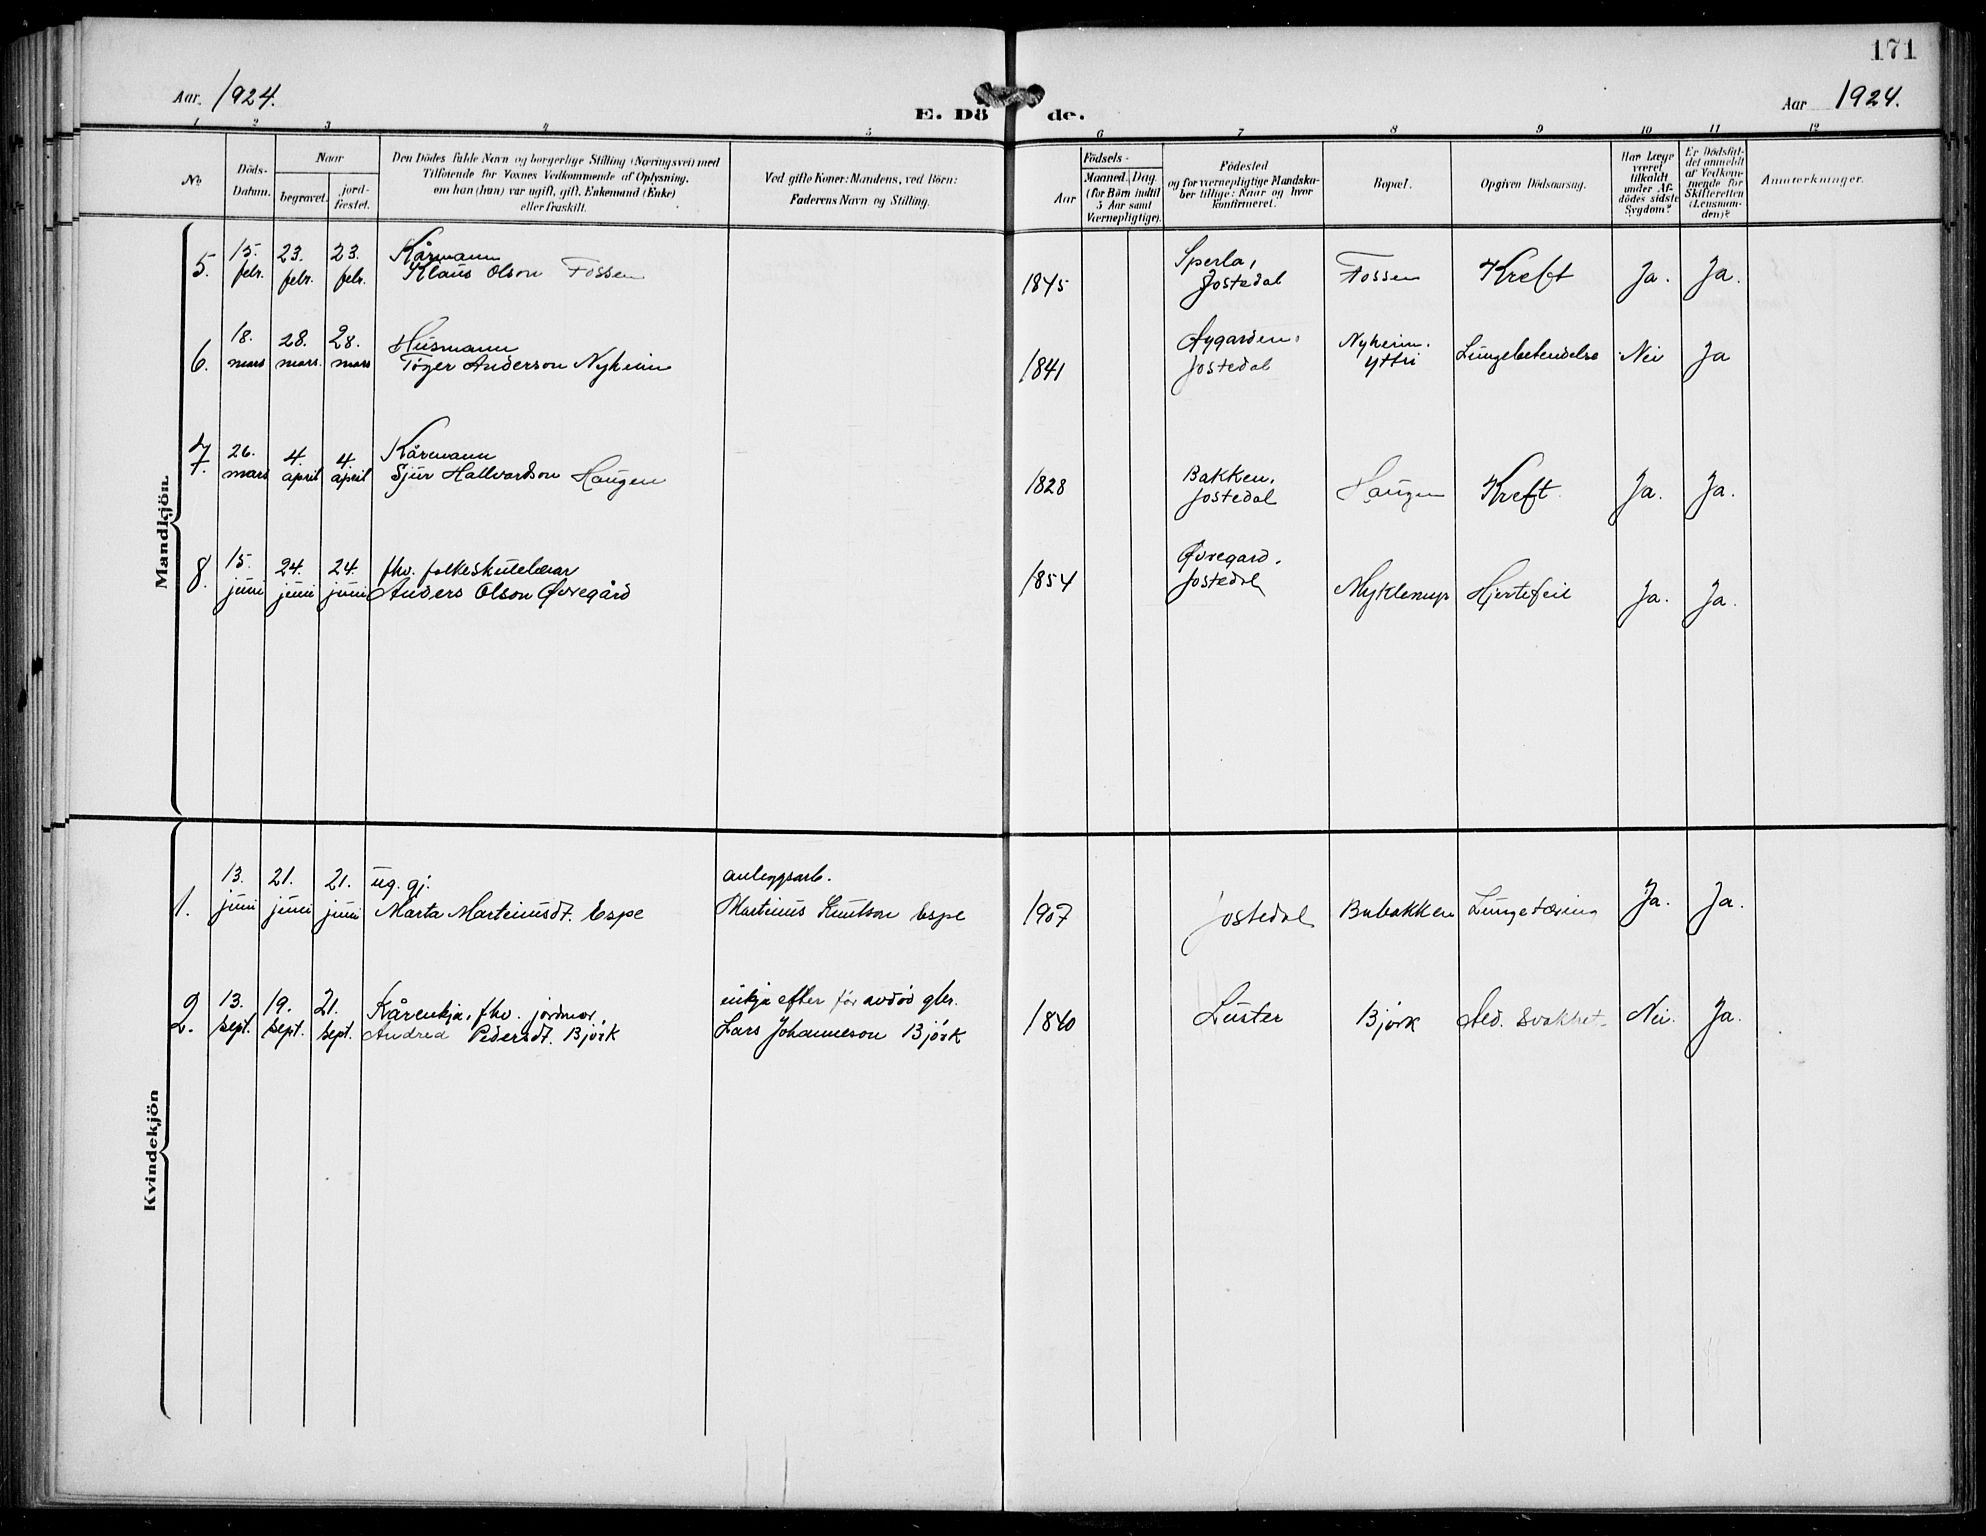 171
Aar. 1924.
E. Dö de.
Aar 1924.
1 2 3 4 5 6 7 8 9 10 11 12
No.
Döds-
Datum.
Naar
begravet.
jord-
fæstet.
Den Dödes fulde Navn og borgerlige Stilling (Næringsvei) med
Tilföiende for Voxnes Vedkommende af Oplysning,
om han (hun) var ugift, gift, Enkemand (Enke)
eller fraskilt.
Ved gifte Koner: Mandens, ved Börn:
Faderens Navn og Stilling.
Födsels-
Aar
Maaned. Dag.
(for Börn indtil
5 Aar samt
Værnepligtige).
Födested
og for værnepligtige Mandska-
ber tillige: Naar og hvor
konfirmeret.
Bopæl.
Opgiven Dödsaarsag.
Har Læge
været
tilkaldt
under Af-
dödes sidste
Sygdom?
Er Dödsfal-
det anmeldt
af Vedkom-
mende for
Skifteretten
(Lensman-
den)?
Anmærkninger.
Mandkjön.
5. 15. febr. 23. febr. 23. febr. Kårmann
Klaus Olson Fossen 1845 Sperla,
Jostedal Fossen Kreft Ja. Ja.
6. 18. mars 28. mars. 28. mars Husmann
Tøger Anderson Nyheim 1841 Nygarden,
Jostedal Nyheim.
Yttri Lungebetendelse Nei Ja
7. 26. mars 4. april 4. april Kårmann
Sjur Hallvardson Haugen 1828 Bakken,
Jostedal Haugen Kreft. Ja. Ja.
8. 15. juni 24. juni 24. juni fhv. folkeskulelærar
Anders Olson Øvregård 1854 Øvregard.
Jostedal Myklemyr Hjertefeil Ja. Ja.
Kvindekjön
1. 13. juni 21. juni 21. juni ug. gj.
Marta Martinusdt. Espe anleggsarb.
Martinus Knutson Espe 1907 Jostedal Bubakken Lungetæring Ja. Ja.
2. 13. sept. 19. sept. 21. sept. Kårenkja, fhv. jordmor,
Andrea Pedersdt. Bjørk enkja efter før avdød gbr.
Lars Johanneson Bjørk 1840 Luster Bjørk Ald. svakhet. Nei. Ja.